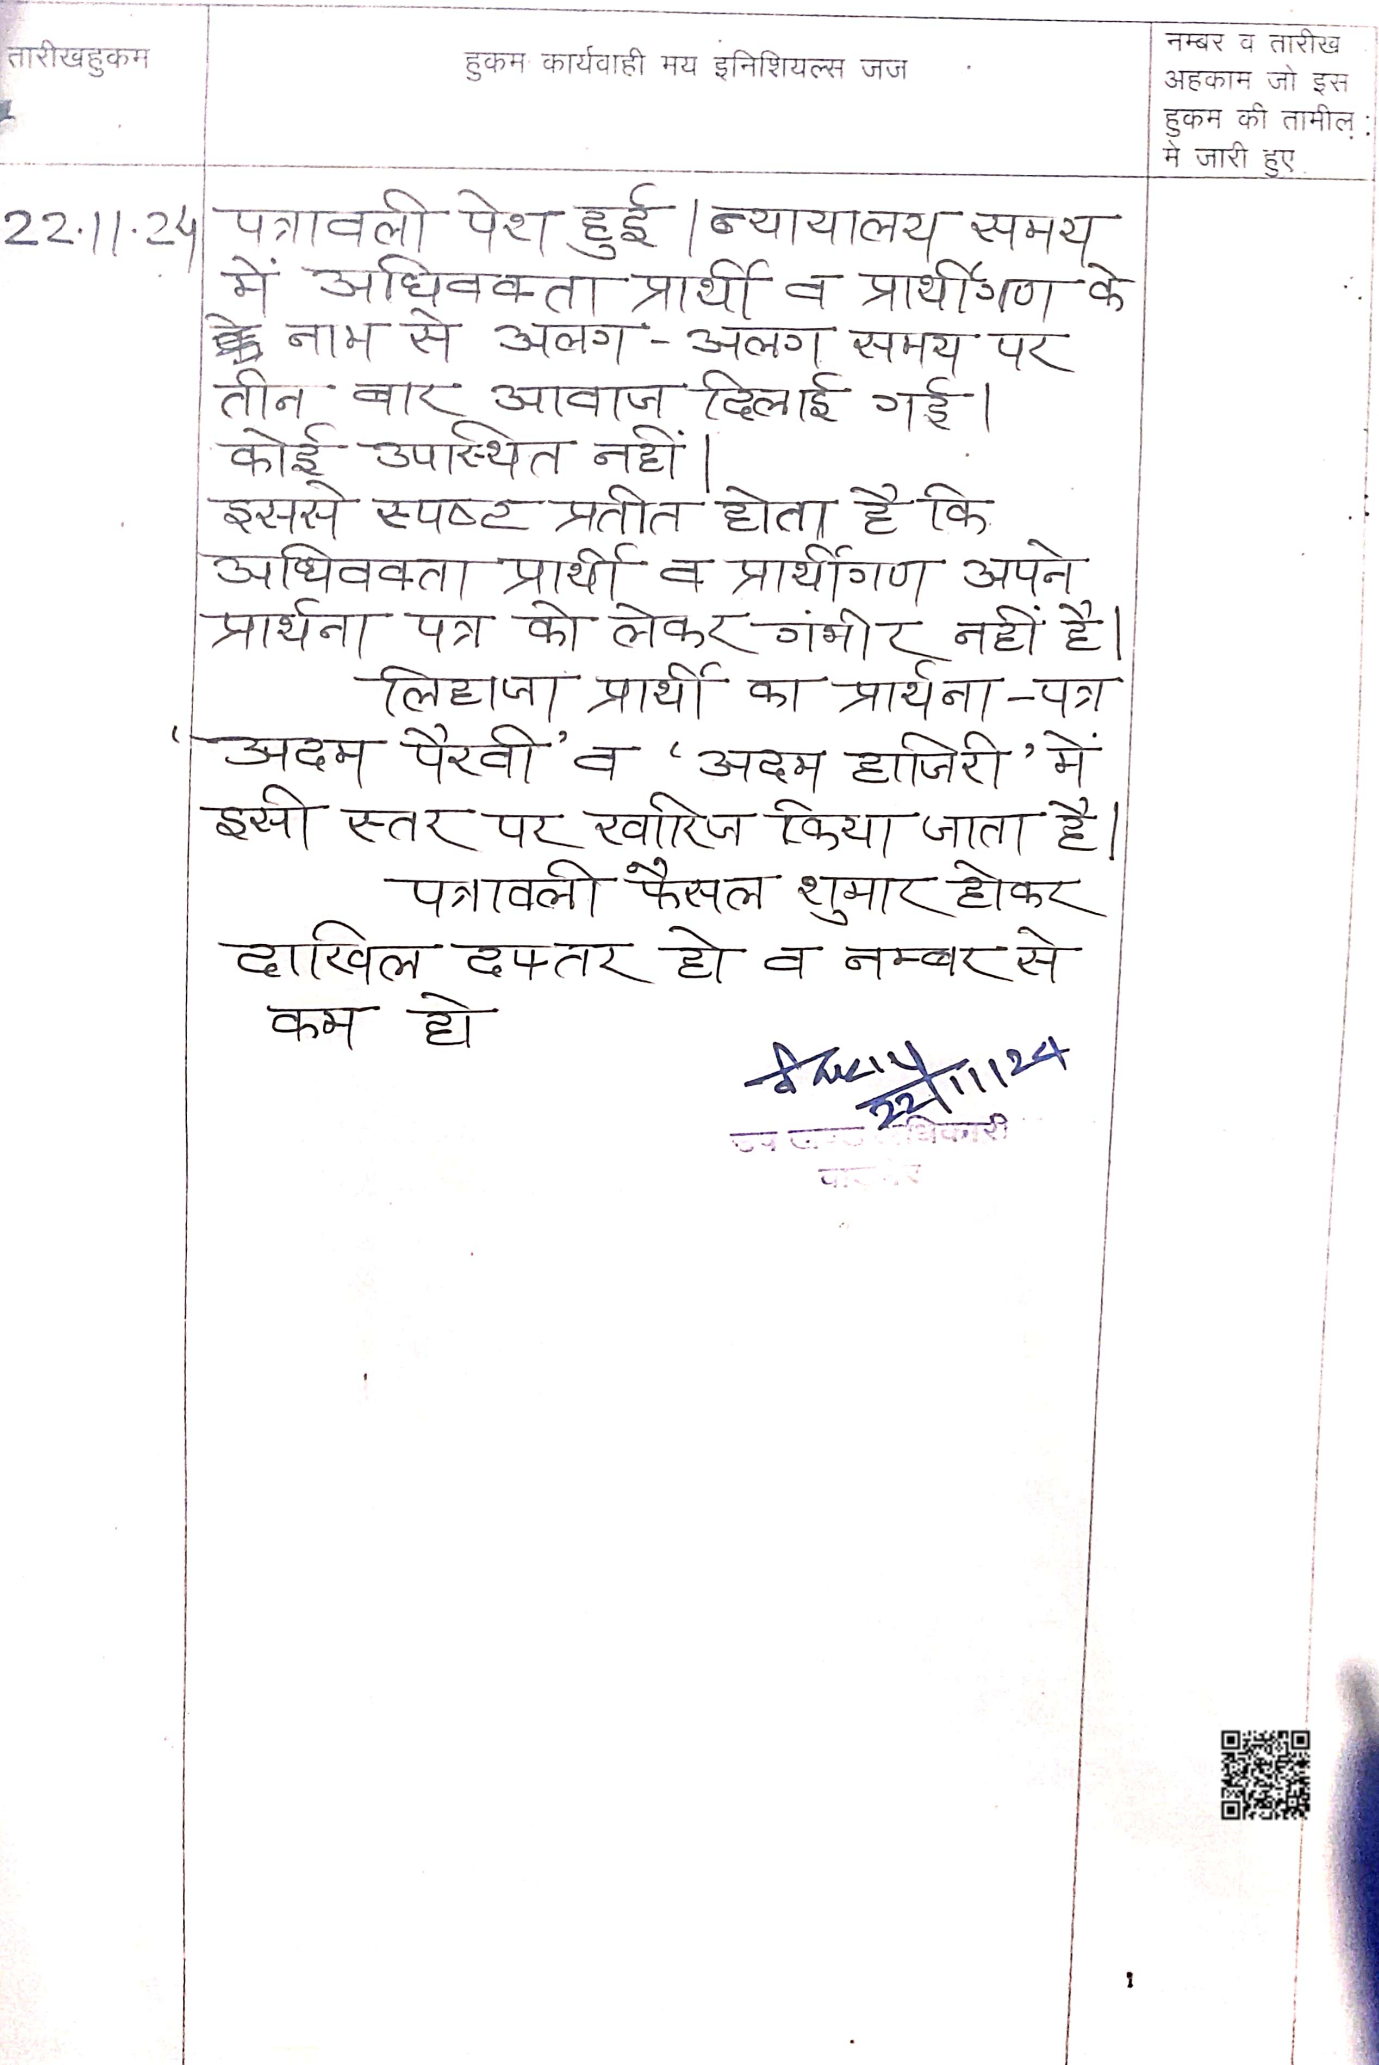 तारीखहुकम
हुकम कार्यवाही मय इनिशियल्स जज
नम्बर व तारीख
अहकाम जो इस
हुकम की तामील
मे जारी हुए
22.11.24
पत्रावली पेश हुई। न्यायालय समय
में अधिवक्ता प्रार्थी व प्रार्थीगण के
नाम से अलग-अलग समय पर
तीन बार आवाज दिलाई गई।
कोई उपस्थित नहीं।
इससे स्पष्ट प्रतीत होता है कि
अधिवक्ता प्रार्थी व प्रार्थीगण अपने
प्रार्थना पत्र को लेकर गंभीर नहीं है।
लिहाजा प्रार्थी का प्रार्थना-पत्र
'अदम पैरवी' व 'अदम हाजिरी' में
इसी स्तर पर खारिज किया जाता है।
पत्रावली फैसल शुमार होकर
दाखिल दफ्तर हो व नम्बर से
कम हो
22/11/24
1